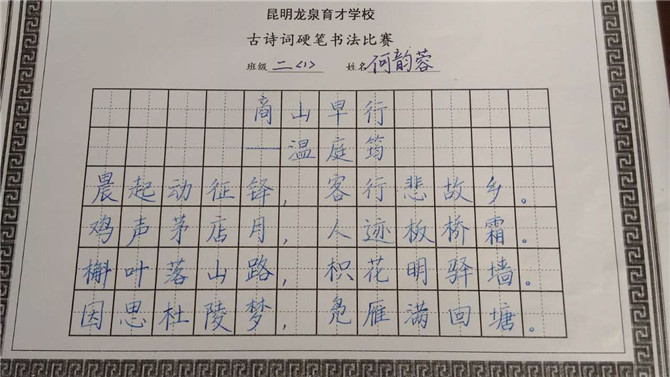 昆明龙泉育才学校
古诗词硬笔书法比赛
班级 二<1> 姓名 何韵蓉
商山早行
——温庭筠
晨起动征铎，客行悲故乡。
鸡声茅店月，人迹板桥霜。
槲叶落山路，枳花明驿墙。
因思杜陵梦，凫雁满回塘。